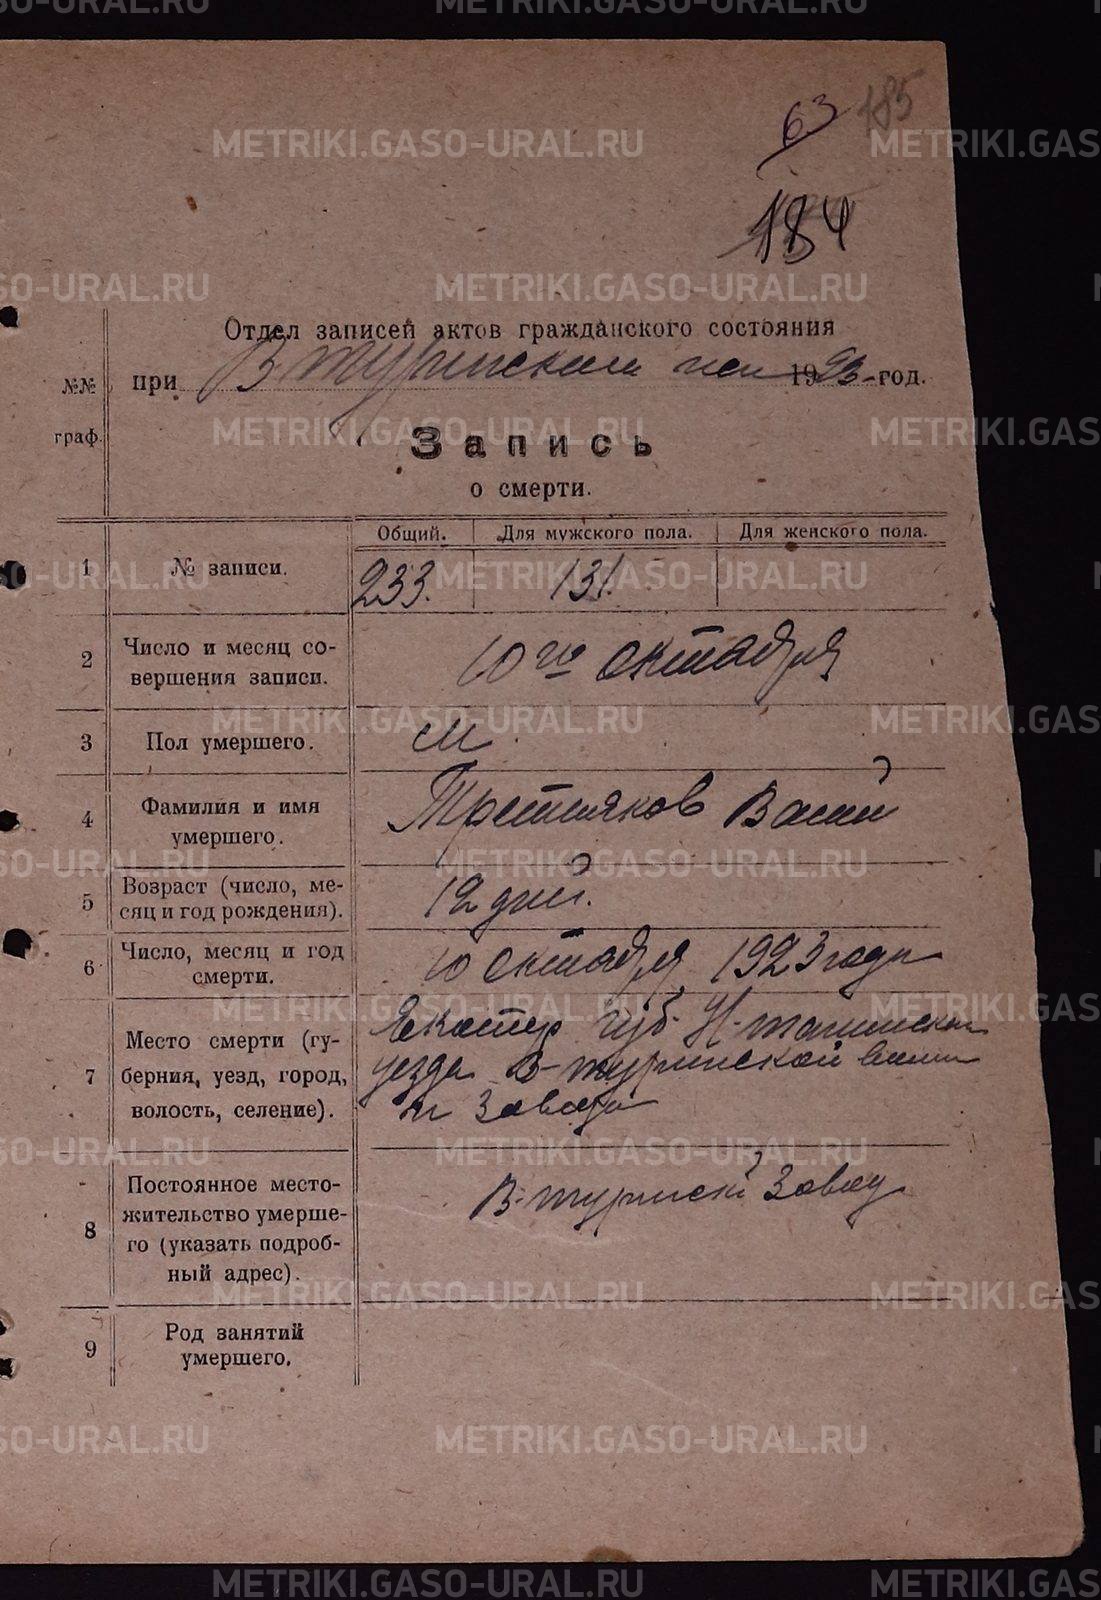 63 185
184
Отдел записей актов гражданского состояния
при В туринском исп 1923-год.
№№
граф.
Запись
о смерти.
Общий. Для мужского пола. Для женского пола.
1 № записи. 233. 131.
2 Число и месяц со-
вершения записи. 10го октября
3 Пол умершего. М
4 Фамилия и имя
умершего. Третьяков Васил
5 Возраст (число, ме-
сяц и год рождения). 12 дней.
6 Число, месяц и год
смерти. 10 октября 1923 года
7 Место смерти (гу-
берния, уезд, город,
волость, селение). Екатер губ. Н-тагилскаго
уезда В-туринской
и Завода
8 Постоянное место-
жительство умерше-
го (указать подроб-
ный адрес). В-туринский Завод
9 Род занятий
умершего.
METRIKI.GASO-URAL.RU